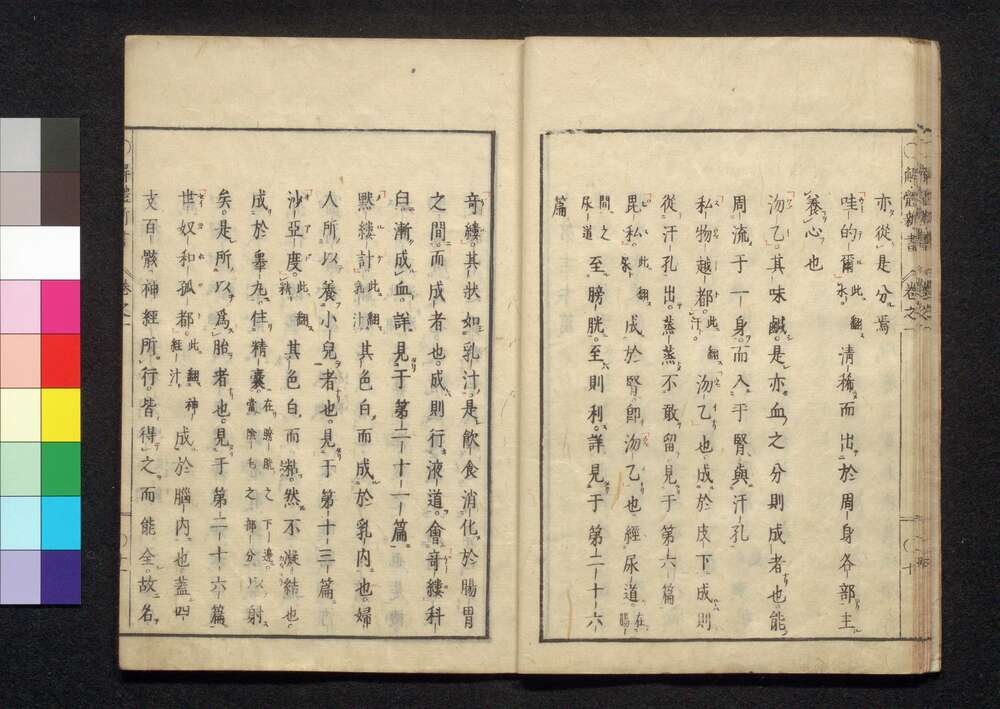 亦從是分焉
哇的爾此翻水清稀而出於周身各部主
養心也
沕乙其味鹹是亦血之分則成者也能
周流于一身而入于腎與汗孔
私物越都此翻汗沕乙也成於皮下成則
從汗孔出蒸蒸不敢留見于第六篇
毘私此翻尿成於腎卽沕乙也經尿道在腸
間之尿道至膀胱至則利詳見于第二十六
篇
奇縷其狀如乳汁是飲食消化於腸胃
之間而成者也成則行液道會奇縷科
臼漸成血詳見于第二十一篇
黙縷計此翻乳汁其色白而成於乳内也婦
人所以養小兒者也見于第十三篇
沙亞度此翻精其色白而然不凝結也
成於睾丸住精囊在膀胱之下邊當陰毛之部分以射
矣是所以爲胎者也見于第二十六篇
世奴和孤都此翻神經汁成於腦内也蓋四
支百骸神經所行皆得之而能全故名
解體新書
卷之一
十
解體新
卷之一